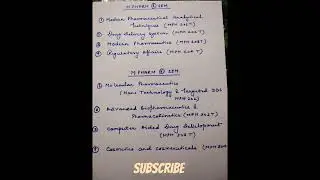 M.PHARM ① SEM
① Modern Pharmaceutical Analytical
Techniques (MPH 101T)
② Drug Delivery System (MPH 102T)
③ Modern Pharmaceutics (MPH 103T)
④ Regulatory Affairs (MPH 104T)
M.PHARM ② SEM
① Molecular Pharmaceutics
(Nano Technology & Targeted DDS
MPH 201
② Advanced Biopharmaceutics &
Pharmacokinetics (MPH 202T)
③ Computer Aided Drug Development
(MPH 203T)
④ Cosmetics and cosmeceuticals (MPH
SUBSCRIBE